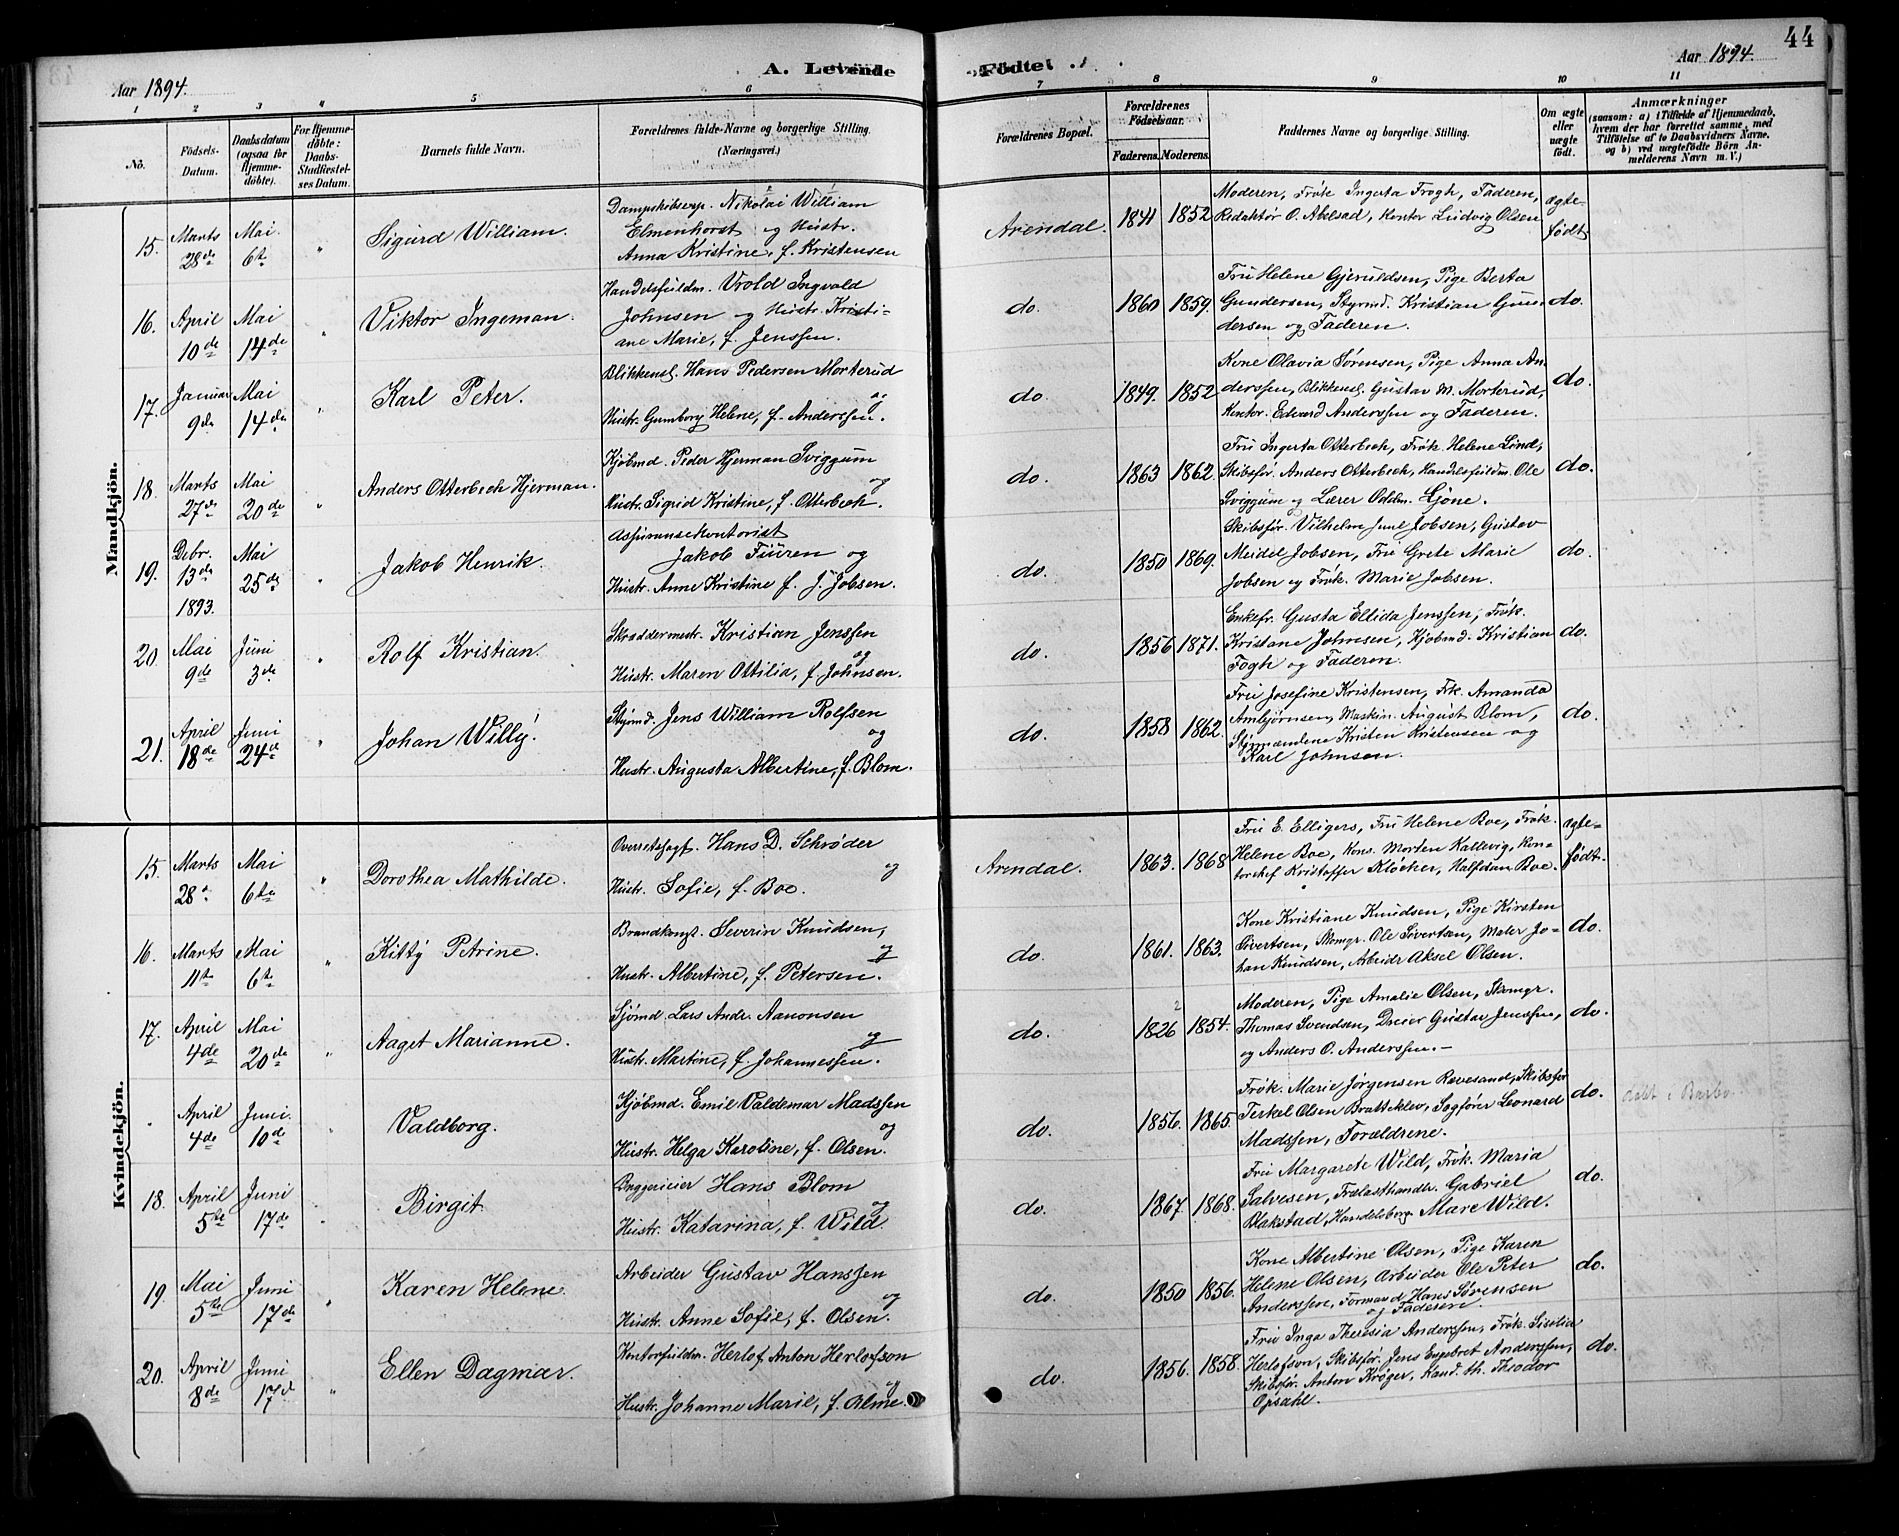 44
Aar 1894.
A. Levende
Fødte.
Aar 1894.
1 2 3 " 5 6 7 8 9 10 11
No.
Fødsels-
Datum.
Daabsdatum
(ogsaa for
Hjemme-
døbte).
For Hjemme-
døbte:
Daabs-
Stadfæstel-
ses Datum.
Barnets fulde Navn.
Forældrenes fulde Navne og borgerlige Stilling.
(Næringsvei.)
Forældrenes Bopæl.
Forældrenes
Fødselsaar.
Faderens. Moderens.
Faddernes Navne og borgerlige Stilling.
Om ægte
eller
uægte
født.
Anmærkninger
(saasom: a) i Tilfælde af Hjemmedaab,
hvem der har forrettet samme, med
Tilføielse af to Daabsvidners Navne,
og b) ved uægtefødte Børn An-
melderens Navn m. V.)
Mandkjön.
15. Marts 28de Mai 6te " Sigurd William.
Dampskibsexp. Nikolai William
Elmenhorst og Hustr.
Anna Kristine, f. Kristensen
Arendal. 1841 1852
Moderen, Frøk Ingerta Frogh, Faderen,
Redaktør O. Abelsad, Kontor Ludvig Olsen
ægte-
født
16. April 10de Mai 14de " Viktor Ingeman.
Handelsfuldm. Vrold Ingvald
Johnsen og Hustr. Kristi-
ane Marie, f. Jenssen.
do. 1860 1859.
Fru Helene Gjeruldsen, Pige Berta
Gundersen, Styrmd. Kristian Gun-
dersen og Faderen.
do.
17. Januar 9de Mai 14de " Karl Peter.
Blikkensl. Hans Pedersen Morterud
og
Hustr. Gunborg Helene, f. Anderssen.
do. 1849. 1852
Kone Olavia Sørensen, Pige Anna An-
derssen, Blikkensl. Gustav M. Morterud,
Kontor. Edvard Anderssen og Faderen.
do.
18. Marts 27de Mai 20de " Anders Otterbech Hjerman.
Kjøbmd. Peder Hjerman Sviggum
og
Hustr. Sigrid Kristine, f. Otterbech.
do. 1863 1862.
Fru Ingerta Otterbech, Frøk. Helene Lind,
Skibsfør. Anders Otterbech, Handelsfuldm. Ole
Sviggum og Lærer Oddm. Ljone.
do.
19. Debr. 13de 1893. Mai 25de " Jakob Henrik.
Assuransekontorist
Jakob Furen og
Hustr. Anne Kristine f. J. Jobsen.
do. 1850 1869.
Skibsfør. Vilhelm Juul Jobsen, Gustav
Meidel Jobsen, Fru Grete Marie
Jobsen og Frøk. Marie Jobsen.
do.
20. Mai 9de Juni 3de " Rolf Kristian.
Skræddermestr. Kristian Jenssen
og
Hustr. Maren Ottilia, f. Johnsen.
do. 1856 1871.
Enkefr. Gusta Ellida Jenssen, Frøk.
Kristane Johnsen, Kjobmd. Kristian
Fogh og Faderen.
do.
21. April 18de Juni 24de " Johan Willy.
Styrmd. Jens William Rolfsen
og
Hustr. Augusta Albertine, f. Blom.
do. 1858 1862.
Fru Josefine Kristensen, Frk. Amanda
Arnbjørnsen, Maskin. August Blom,
Styrmændene Kristen Kristensen og
Karl Johnsen.
do.
Kvindekjön.
15. Marts 28de Mai 6te " Dorothea Mathilde.
Overretssagf. Hans D. Schrøder
og
Hustr. Sofie, f. Boe.
Arendal. 1863. 1868
Fru E. Elligers, Fru Helene Boe, Frøk.
Helene Boe, Kons. Morten Kallevig, Kon-
torchef Kristoffer Kløcker, Halfdan Boe.
ægte-
født.
16. Marts 11te Mai 6te " Kitty Petrine.
Brandkonst. Severin Knudsen,
og
Hustr. Albertine, f. Petersen.
do. 1861. 1863.
Kone Kristiane Knudsen, Pige Kirsten
Sivertsen, Skomgr. Ole Sivertsen, Maler Jo-
han Knudsen, Arbeidr Aksel Olsen.
do.
17. April 4de Mai 20de " Aaget Marianne.
Sjømd. Lars Andr. Aanonsen
og
Hustr. Martine, f. Johannessen.
do. 1826 1854.
Moderen, Pige Amalie Olsen, Skomgr.
Thomas Svendsen, Dreier Gustav Jenssen,
og Anders O. Anderssen.
do.
April 4de Juni 10de Valdborg.
Kjøbmd. Emil Valdemar Madssen
og
Hustr. Helga Karoline, f. Olsen.
do. 1856. 1865.
Frøk. Marie Jørgensen Revesand, Skibsfør
Terkel Olsen Bratteklev, Sogfører Leonard
Madssen, Forældrene.
do. døbt i Barbo.
18. April 5te Juni 17de " Birgit.
Bryggerieier Hans Blom
og
Hustr. Katarina, f. Wild
do. 1867. 1868.
Fru Margarete Wild, Frøk. Maria
Salvesen, Trælasthandlr. Gabriel
Blakstad, Handelsborg. Marc Wild.
do.
19. Mai 5te Juni 17de " Karen Helene.
Arbeider Gustav Hanssen
og
Hustr. Anne Sofie, f. Olsen.
do. 1850 1856.
Kone Albertine Olsen, Pige Karen
Helene Olsen, Arbeider Ole Peter
Anderssen, Formand Hans Sørensen
og Faderen.
do.
20. April 8de Juni 17de " Ellen Dagmar.
Kontorfuldm. Herlof Anton Herlofson
og
Hustr. Johanne Marie, f. Alme.
do. 1856. 1858.
Fru Inga Theresia Anderssen, Frøk. Sisilia
Herlofson, Skibsfør. Jens Engebret Anderssen,
Skibsfør. Anton Krøger, Kand. th. Theodor
Opsahl.
do.